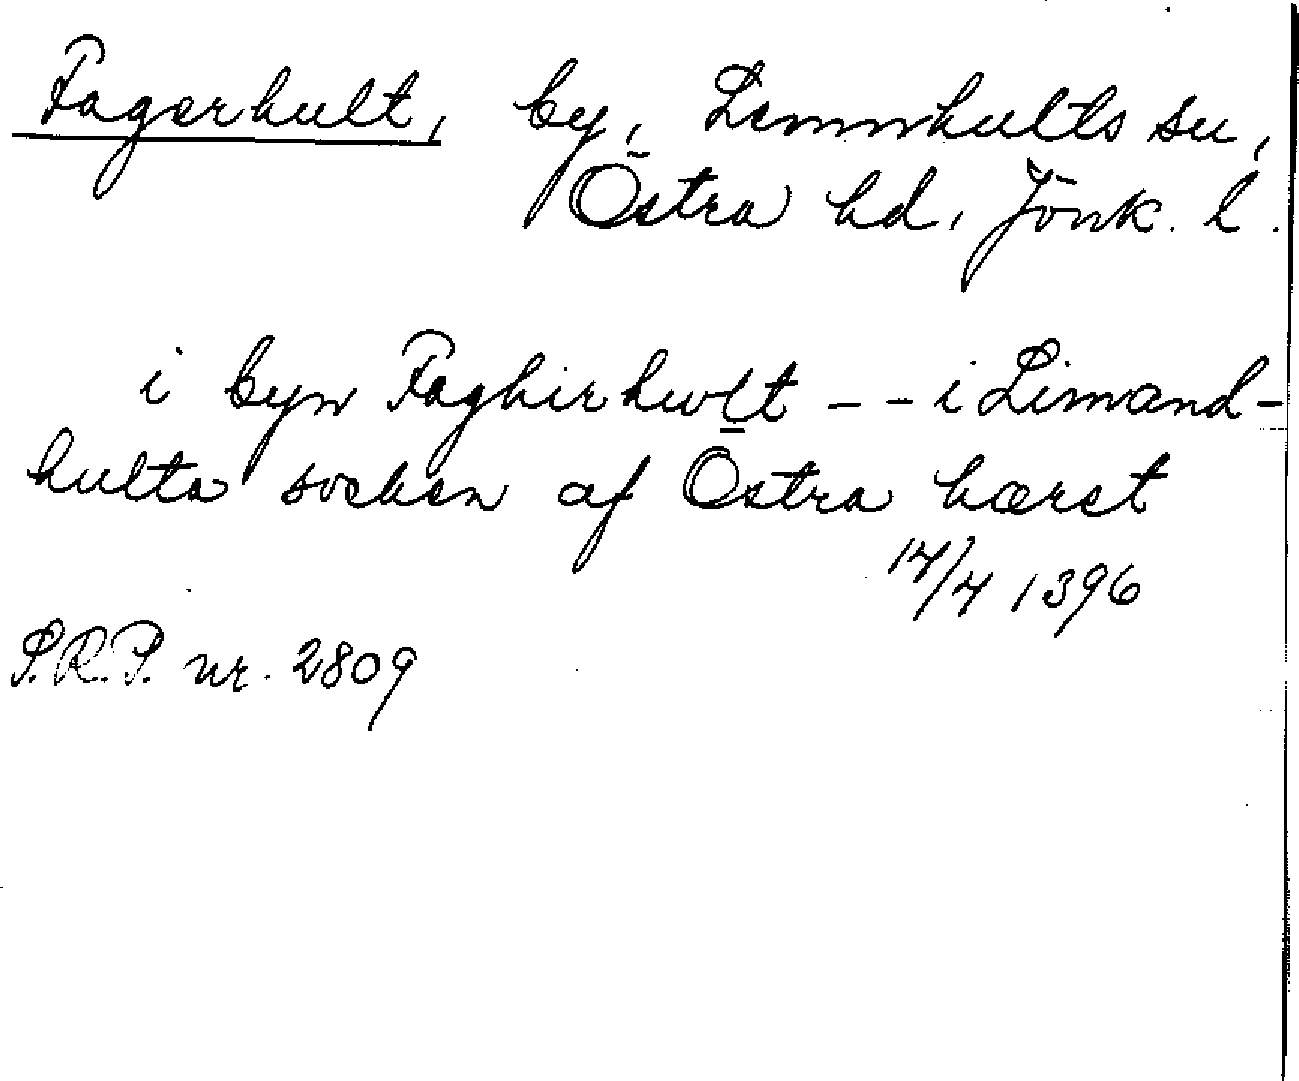 Fagerhult, by, Lemnhults sn,
Östra hd, Jönk. l.
i byn Faghirhwlt -- i Limand-
hulta socken af Östra hæret
14/4 1396
S.R.P. nr. 2809